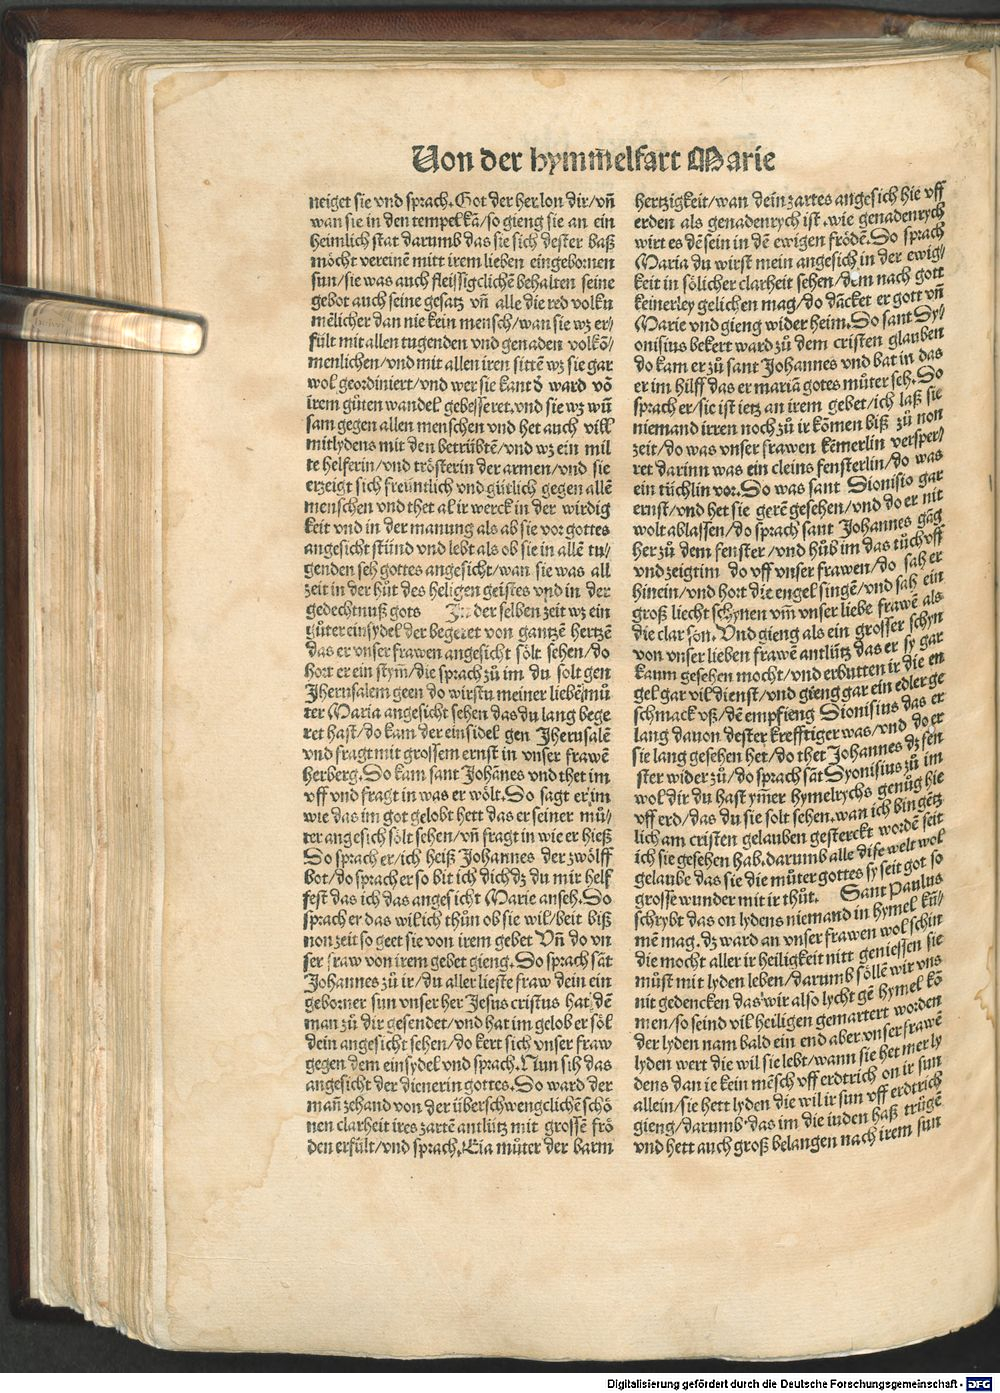 Von der hym̄elfart Marie
neiget sie vnd sprach. Got der her lon dir/vn̄
wan sie in den tempel kā/so gieng sie an ein
heimlich stat darumb das sie sich dester baß
möcht vereinē mitt irem lieben eingebornen
sun/sie was auch fleissigclichē behalten seine
gebot auch seine gesatz vn̄ alle die red volku
mēlicher dan nie kein mensch/wan sie wz er⸗
fült mit allen tugenden vnd genaden volkō⸗
menlichen/vnd mit allen iren sittē wz sie gar
wol geordiniert/vnd wer sie kant d̄ ward vō
irem gůten wandel gebesseret.vnd sie wz wū
sam gegen allen menschen vnd het auch vill
mitlydens mit den betrübtē/vnd wz ein mil
te helferin/vnd trösterin der armen/vnd sie
erzeigt sich freüntlich vnd gütlich gegen allē
menschen vnd thet al ir werck in der wirdig
keit vnd in der manung als ab sie vor gottes
angesicht stünd vnd lebt als ob sie in allē tu⸗
genden seh gottes angesicht/wan sie was all
zeit in der hůt des heligen geistes vnd in der
gedechtnuß gots In der selben zeit wz ein
gůter einsydel der begeret von gantzē hertzē
das er vnser frawen angesicht sölt sehen/do
hort er ein stym̄/die sprach zů im du solt gen
Jherusalem geen do wirstu meiner liebē mů
ter Maria angesicht sehen das du lang bege
ret hast/do kam der einsidel gen Jherusalē
vnd fragt mit grossem ernst in vnser frawē
herberg. So kam sant Johānes vnd thet im
vff vnd fragt in was er wölt. So sagt er im
wie das im got gelobt hett das er seiner mů⸗
ter angesich sölt sehen/vn̄ fragt in wie er hieß
So sprach er/ich heiß Johannes der zwölff
bot/do sprach er so bit ich dich dz du mir helf
fest das ich das angesicht Marie anseh. So
sprach er das wil ich thůn ob sie wil/beit biß
non zeit so geet sie von irem gebet Vn̄ do vn
ser fraw von irem gebet gieng. So sprach sāt
Johannes zů ir/du aller lieste fraw dein ein
geborner sun vnser her Jesus cristus hat dē
man zů dir gesendet/vnd hat im gelob er söl
dein angesicht sehen/do kert sich vnser fraw
gegen dem einsydel vnd sprach. Nun sih das
angesicht der dienerin gottes. So ward der
man̄ zehand von der überschwengclichē schö
nen clarheit ires zartē antlütz mit grossē frö
den erfült/vnd sprach. Eia můter der barm
hertzigkeit/wan dein zartes angesich hie vff
erden als genadenrych ist. wie genadenrych
wirt es dē sein in dē ewigen frödē. So sprach
Maria du wirst mein angesich in der ewig⸗
keit in sölicher clarheit sehen/dem nach gott
keinerley gelichen mag/do dācket er gott vn̄
Marie vnd gieng wider heim. So sant Sy⸗
onisius bekert ward zů dem cristen glauben
do kam er zů sant Johannes vnd bat in das
er im hilff das er mariā gotes můter seh. So
sprach er/sie ist ietz an irem gebet/ich laß sie
niemand irren noch zů ir kōmen biß zů non
zeit/do was vnser frawen kēmerlin versper⸗
ret darinn was ein cleins fensterlin/do was
ein tüchlin vor. So was sant Sionisio gar
ernst/vnd het sie gerē gesehen/vnd do er nit
wolt ablassen/do sprach sant Johannes gāg
her zů dem fenster/vnd hůb im das tůch vff
vnd zeigt im do vff vnser frawen/do sah er
hinein/vnd hort die engel singē/vnd sah ein
groß liecht schynen vm̄ vnser liebe frawē als
die clar son. Vnd gieng als ein grosser schyn
von vnser lieben frawē antlütz das er sy gar
kaum gesehen mocht/vnd erbutten ir die en
gel gar vil dienst/vnd gieng gar ein edler ge
schmack vß/dē empfieng Sionisius das er
lang dauon dester krefftiger was/vnd do er
sie lang gesehen het/do thet Johannes dz fen
ster wider zů/do sprach sāt Syonisius zů im
wol dir du hast ym̄er hymelrychs genůg hie
vff erd/das du sie solt sehen. wan ich bin gētz
lich am cristen gelauben gesterckt wordē seit
ich sie gesehen hab. darumb alle dise welt wol
gelaube das sie die můter gottes sy seit got so
grosse wunder mit ir thůt. Sant Paulus
schrybt das on lydens niemand in hymel kū⸗
mē mag. dz ward an vnser frawen wol schin
die mocht aller ir heiligkeit nitt geniessen sie
můst mit lyden leben/darumb söllē wir vns
nit gedencken das wir also lycht gē hymel kō
men/so seind vil heiligen gemartert worden
der lyden nam bald ein end aber vnser frawē
lyden wert die wil sie lebt/wann sie het mer ly
dens dan ie kein mēsch vff erdtrich on ir sun
allein/sie hett lyden die wil ir sun vff erdtrich
gieng/darumb das im die iuden haß trügē
vnd hett auch groß belangen nach irem sun
Digitalisierung gefördert durch die Deutsche Forschungsgemeinschaft - DFG